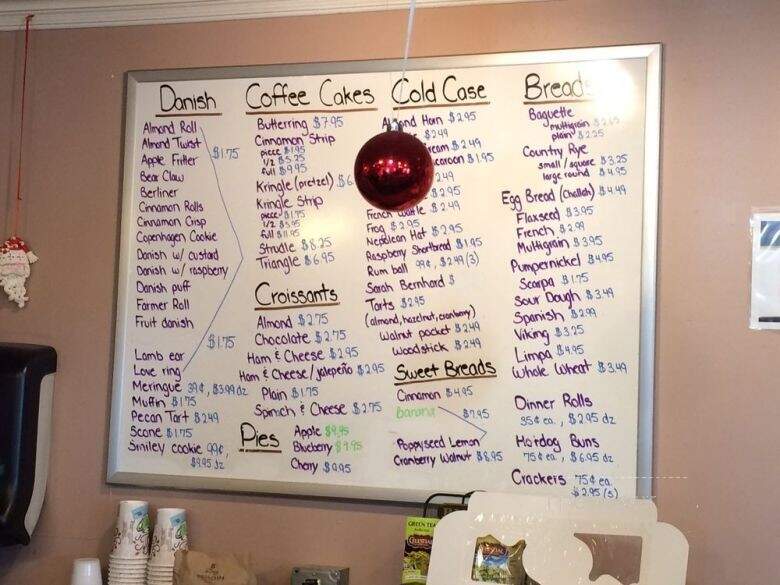 Danish
Almond Roll
Almond Twist
Apple Fritter
$1.75
Bear Claw
Berliner
Cinnamon Rolls
Cinnamon Crisp
Copenhagen Cookie
Danish w/ custard
Danish w/ raspberry
Danish puff
Farmer Roll
Fruit danish
$1.75
Lamb ear
Love ring
Meringue 39¢, $3.99 dz
Muffin $1.75
Pecan Tart $2.49
Scone $1.75
Smiley cookie 99¢,
$9.95 dz
Coffee Cakes
Butterring $7.95
Cinnamon Strip
piece $1.95
1/2 $5.25
full $9.95
Kringle (pretzel) $6
Kringle Strip
piece $1.75
1/2 $5.95
full $11.95
Strudle $8.25
Triangle $6.95
Croissants
Almond $2.75
Chocolate $2.75
Ham & Cheese $2.95
Ham & Cheese/jalepeño $2.95
Plain $1.75
Spinach & Cheese $2.75
Pies
Apple $9.95
Blueberry $9.95
Cherry $9.95
Cold Case
Almond Horn $2.95
$2.49
ream $2.49
caroon $1.95
2.49
$2.95
French Waffle $2.49
Frog $2.95
Nepolean Hat $2.95
Raspberry Shortbread $1.95
Rum ball 99¢, $2.49 (3)
Sarah Bernhard $
Tarts $2.95
(almond, hazelnut, cranberry)
Walnut pocket $2.49
Woodstick $2.49
Sweet Breads
Cinnamon $4.95
banana
$7.95
Poppyseed Lemon
Cranberry Walnut $8.95
Breads
Baguette
multigrain $2.65
plain $2.25
Country Rye
small/square $3.25
large round $4.95
Egg Bread (Challah) $4.49
Flaxseed $3.95
French $2.99
Multigrain $3.95
Pumpernickel $4.95
Scarpa $1.75
Sour Dough $3.49
Spanish $2.99
Viking $3.25
Limpa $4.95
Whole Wheat $3.49
Dinner Rolls
35¢ ea., $2.95 dz
Hotdog Buns
75¢ ea, $6.95 dz
Crackers 75¢ ea
$2.95 (5)
GREEN TEA
CELESTIAL